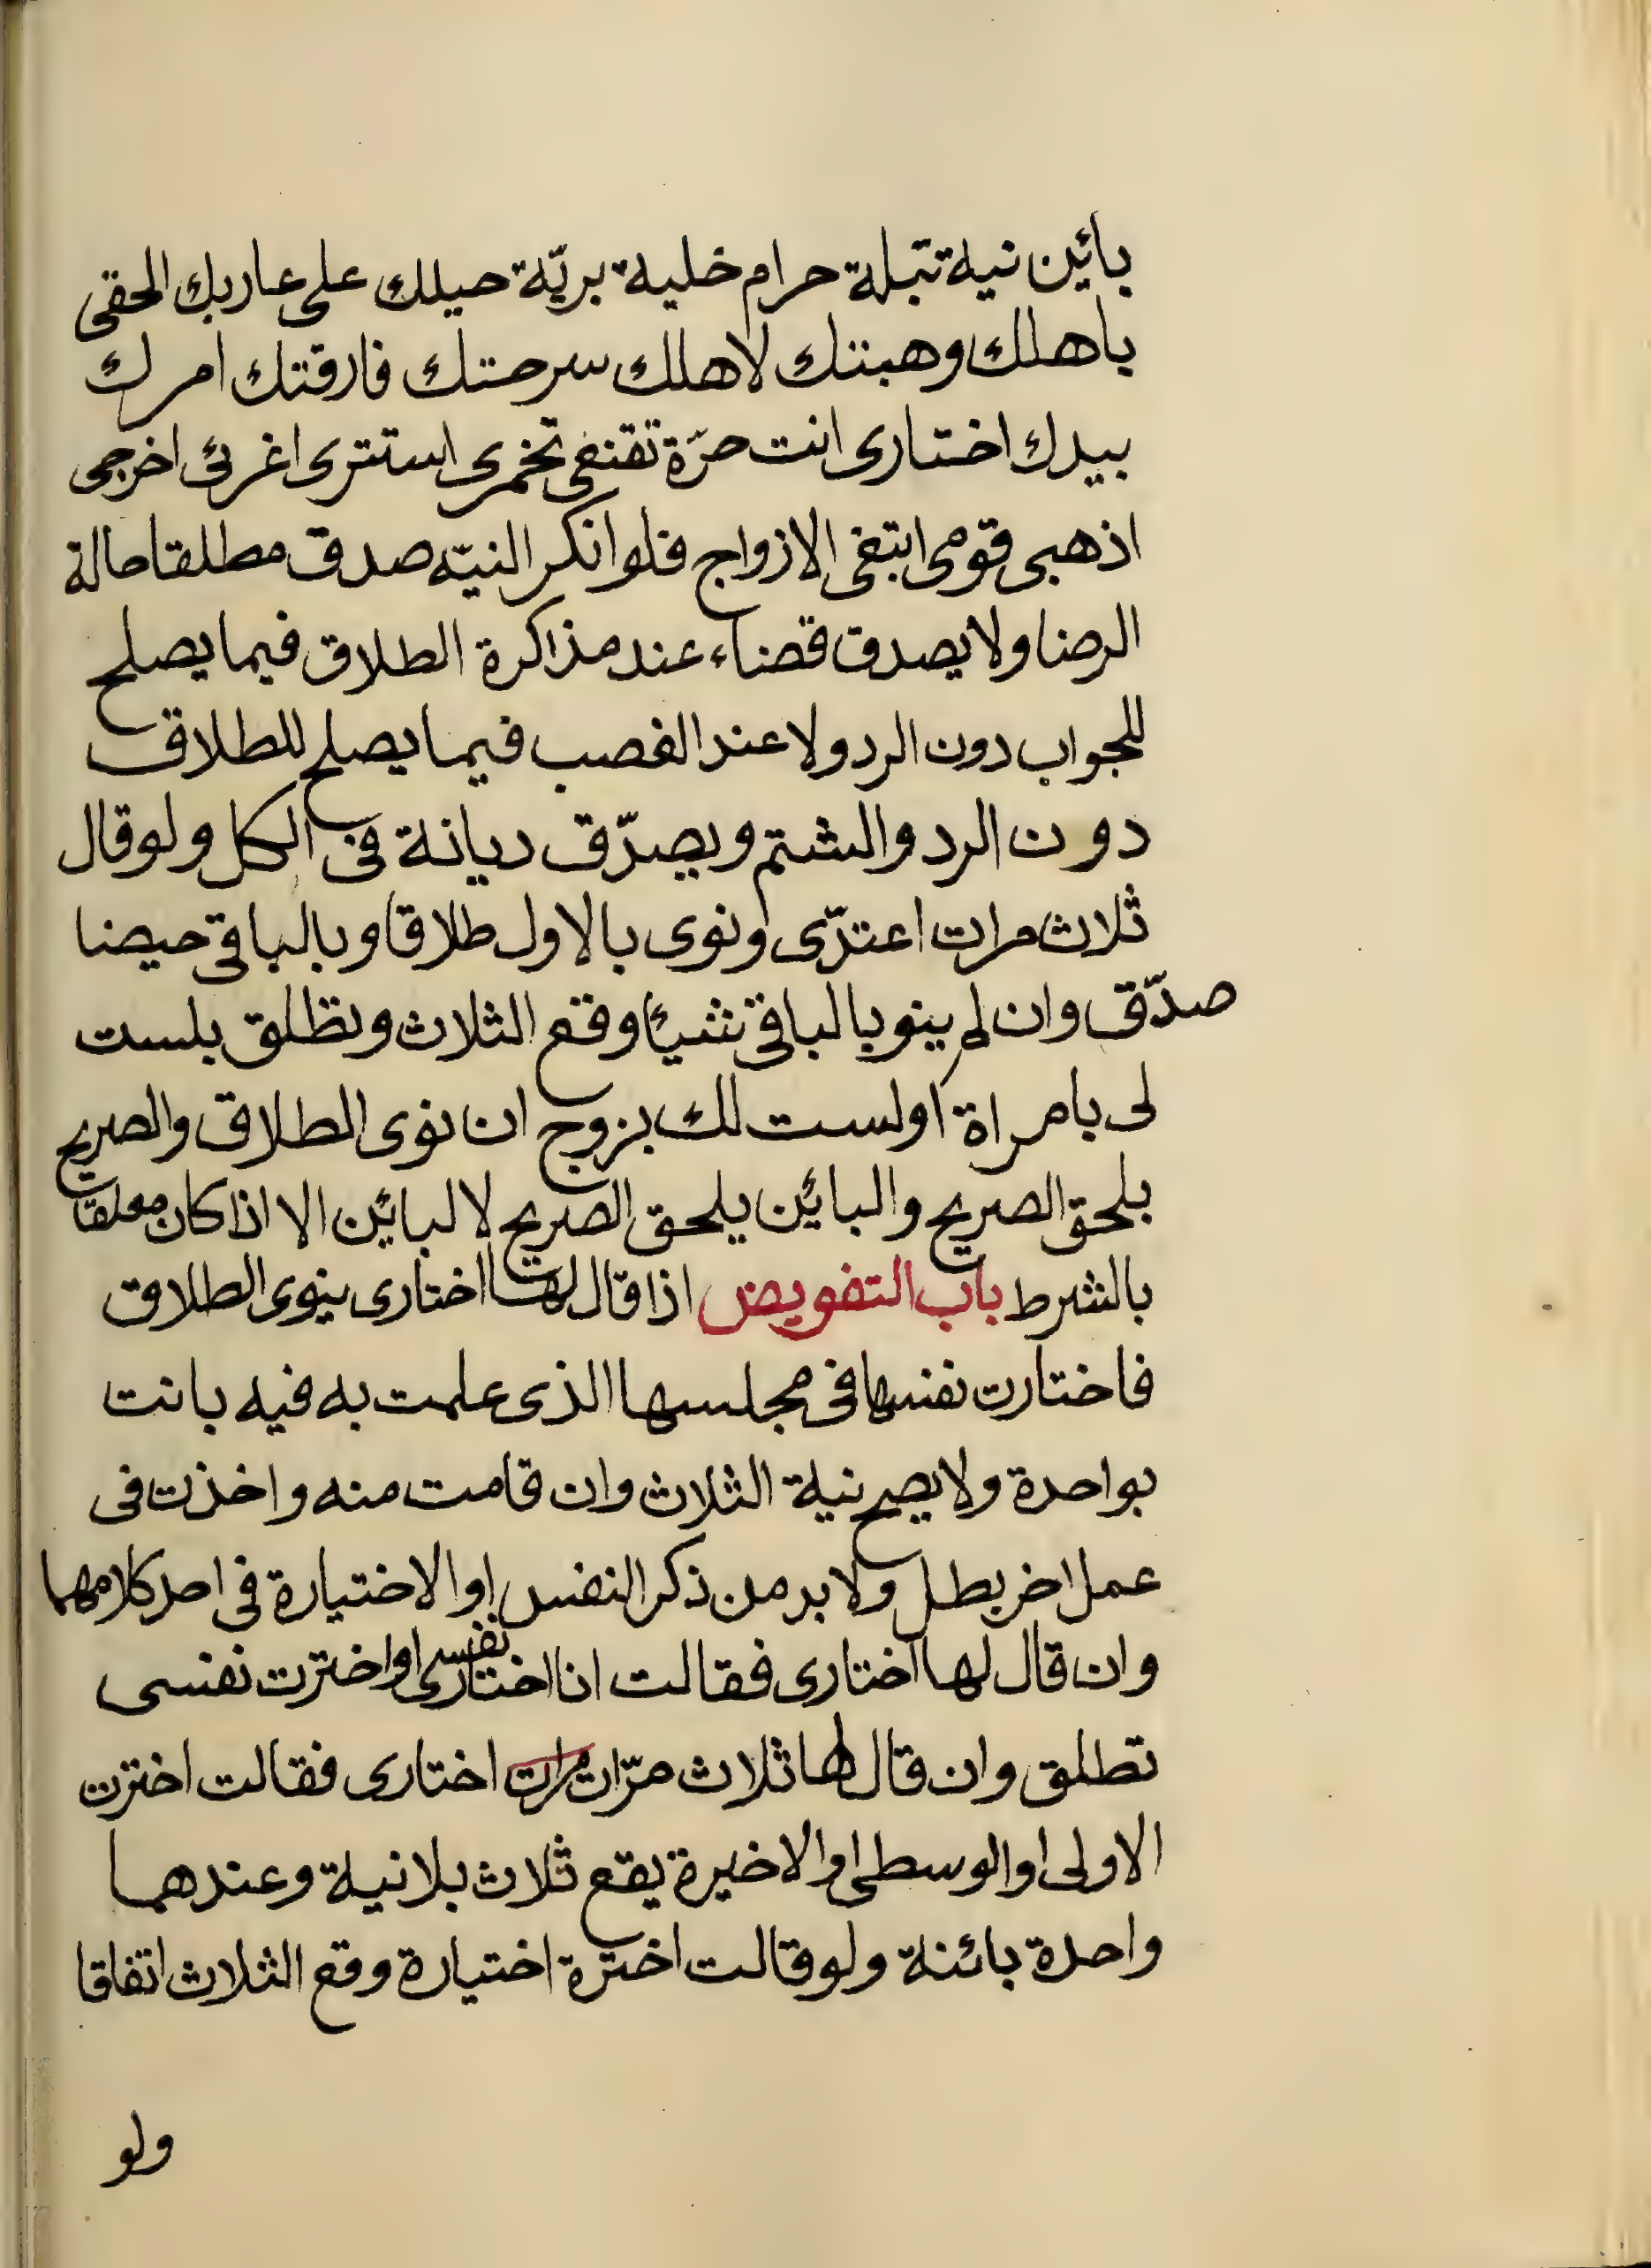 بائن نية تبلة حرام خلية برّية حبلك على عاربك الحقى
باهلك وهبتك لاهلك سرحتك فارقتك امرك
بيدك اختارى انت حرّة تقنعى تخمرى استترى اغربى اخرجى
اذهبى قومى ابتغى الازواج فلو انكر النية صدق مطلقا حالة
الرضا ولا يصدق قضاء عند مذاكرة الطلاق فيما يصلح
للجواب دون الرد ولا عند الغضب فيما يصلح للطلاق
دون الرد والشتم ويصدّق ديانة فى الكل ولو قال
ثلاث مرات اعتدّى ونوى بالاول طلاقا وبالباقى حيضا
صدّق وان لم ينو بالباقى شيئا وقع الثلاث وتطلق بلست
لى بامراة او لست لك بزوج ان نوى الطلاق والصريح
يلحق الصريح والبائن يلحق الصريح لا البائن الا اذا كان معلقا
بالشرط باب التفويض اذا قال لها اختارى ينوى الطلاق
فاختارت نفسها فى مجلسها الذى علمت به فيه بانت
بواحدة ولا يصح نية الثلاث وان قامت منه واخذت فى
عمل اخر بطل ولا بد من ذكر النفس او الاختيارة فى احد كلامهما
وان قال لها اختارى فقالت انا اختارى نفسى او اخترت نفسى
تطلق وان قال لها ثلاث مرّات مرات اختارى فقالت اخترت
الاولى او الوسطى او الاخيرة يقع ثلاث بلا نية وعندهما
واحدة بائنة ولو قالت اخترة اختيارة وقع الثلاث اتفاقا
ولو